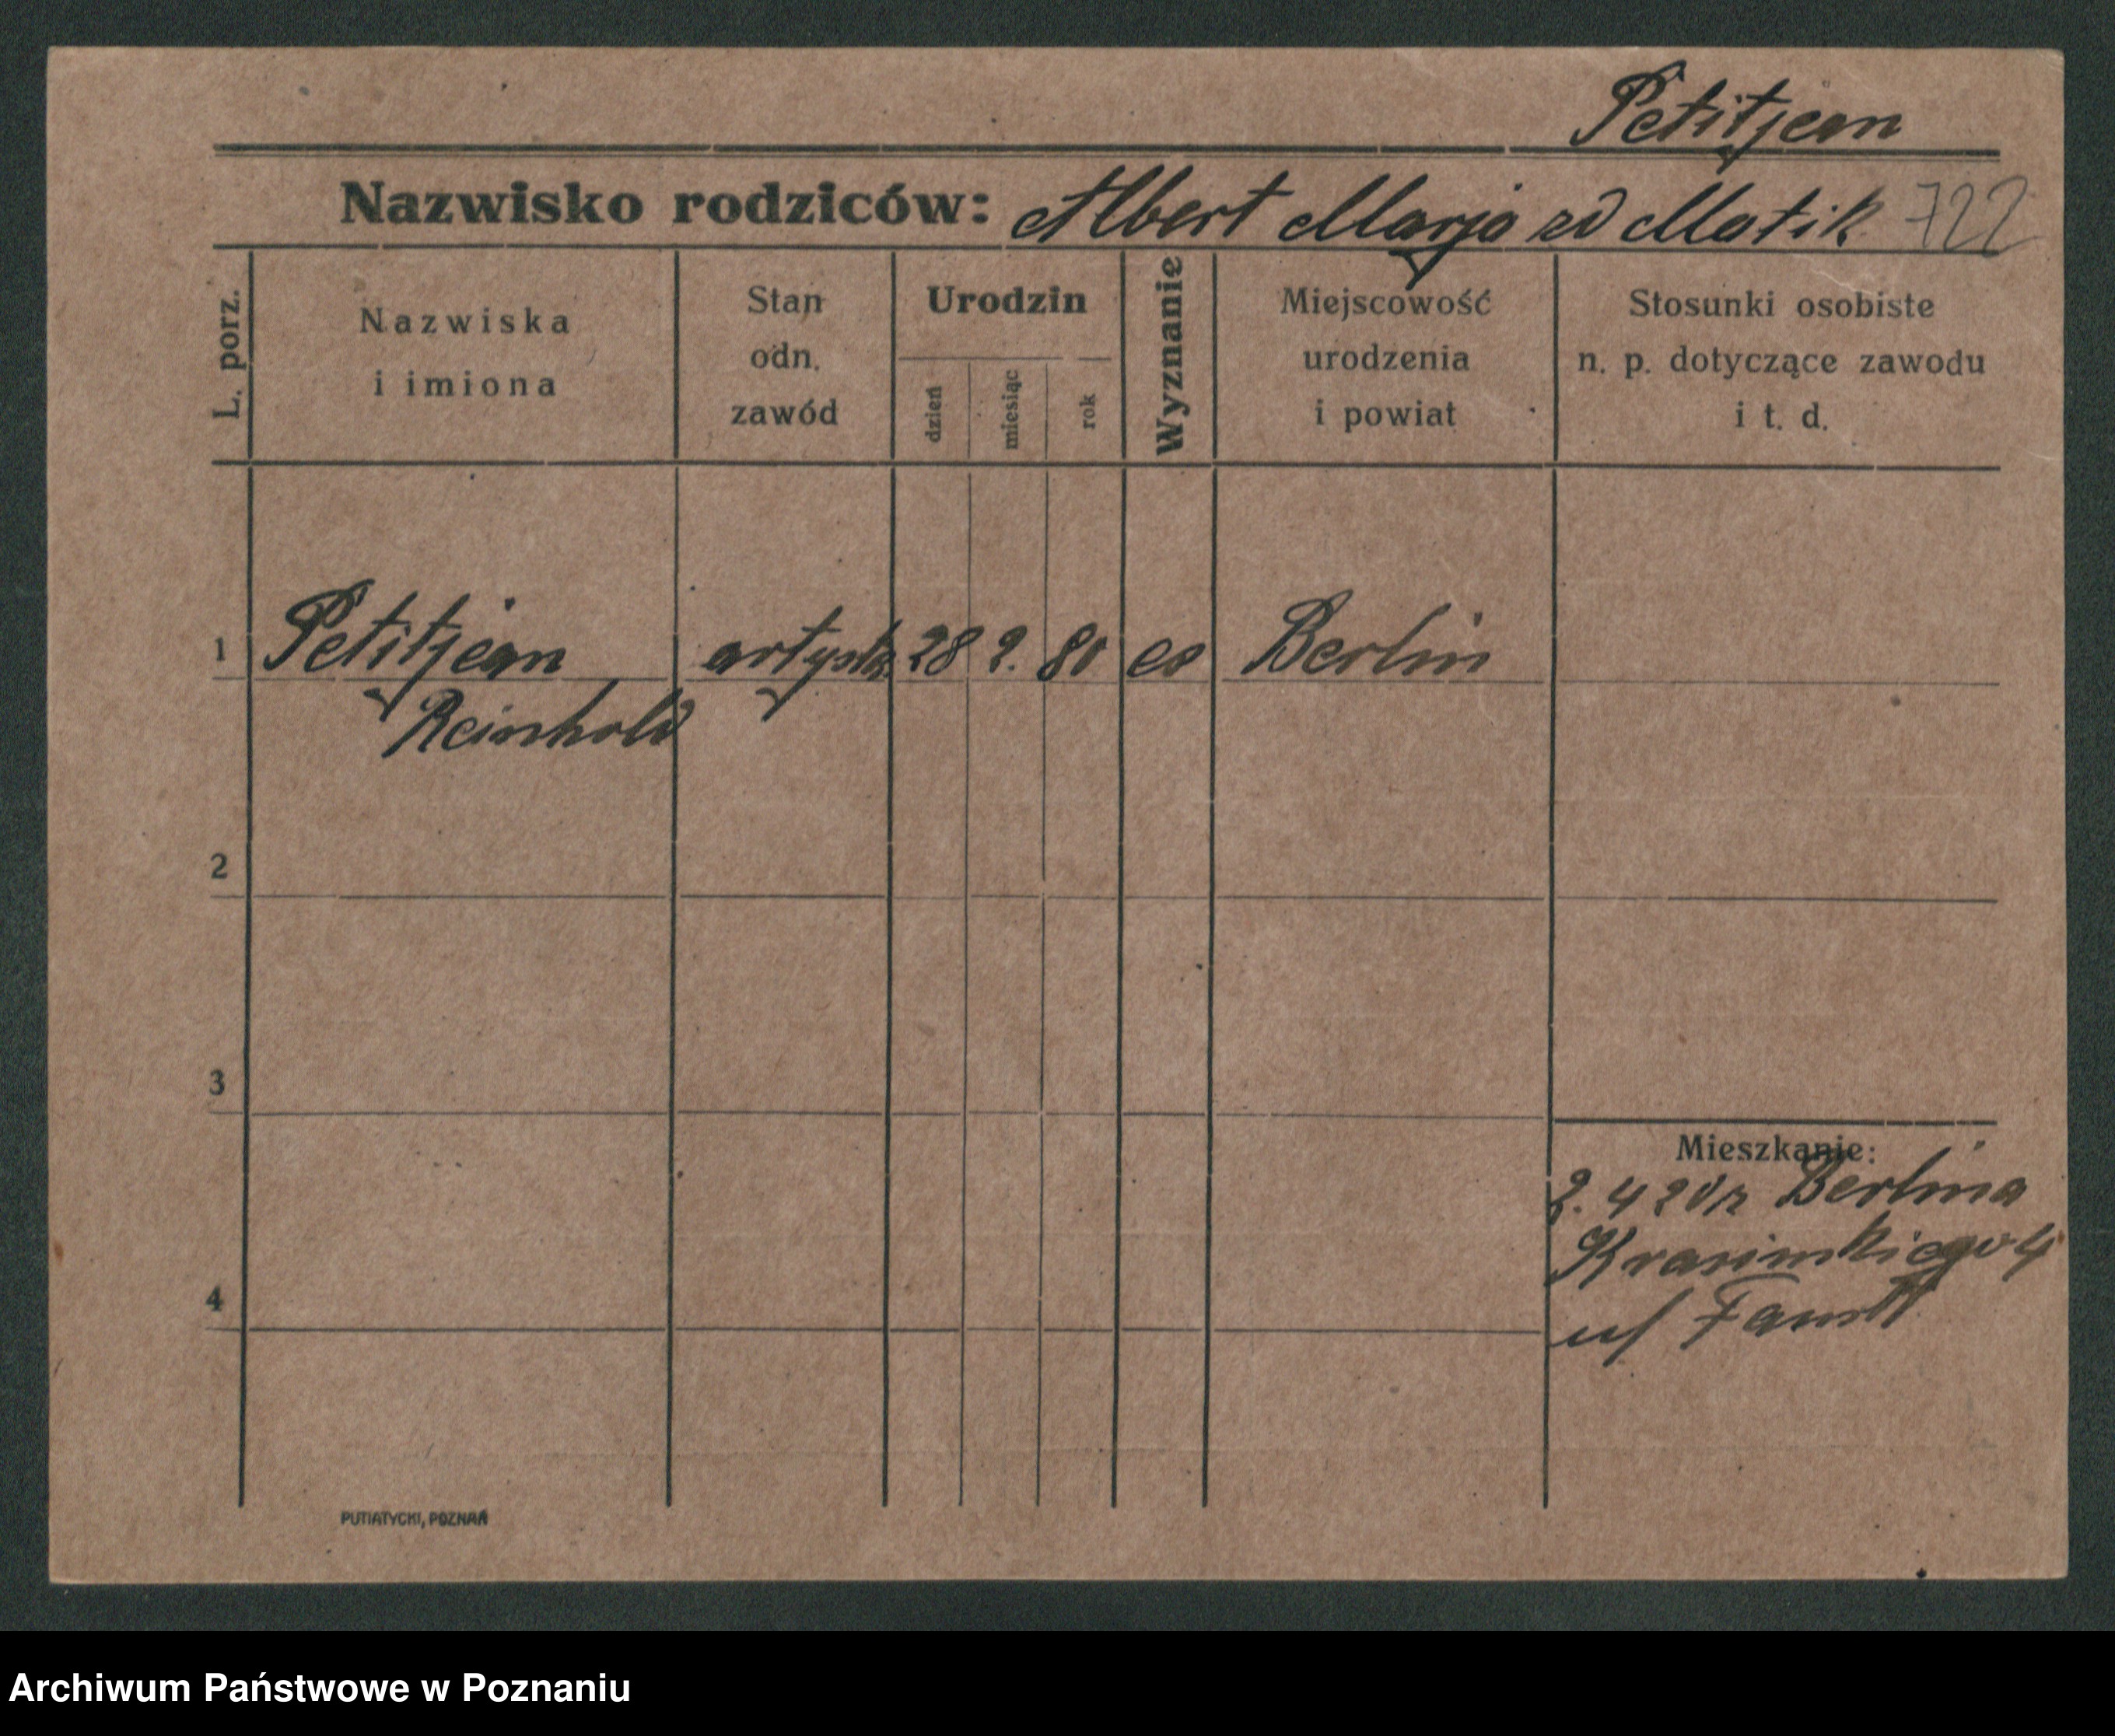 Petitjean
Nazwisko rodziców: Albert Marja zd Matik 722
L. porz.
Nazwiska
i imiona
Stan
odn.
zawód
Urodzin
dzień
miesiąc
rok
Wyznanie
Miejscowość
urodzenia
i powiat
Stosunki osobiste
n. p. dotyczące zawodu
i t. d.
1 Petitjean artysta 28 2. 80 Berlin
Reinhold
2
3
Mieszkanie:
2. 4 Berlina
4
PUTIATYCKI, POZNAŃ
Archiwum Państwowe w Poznaniu